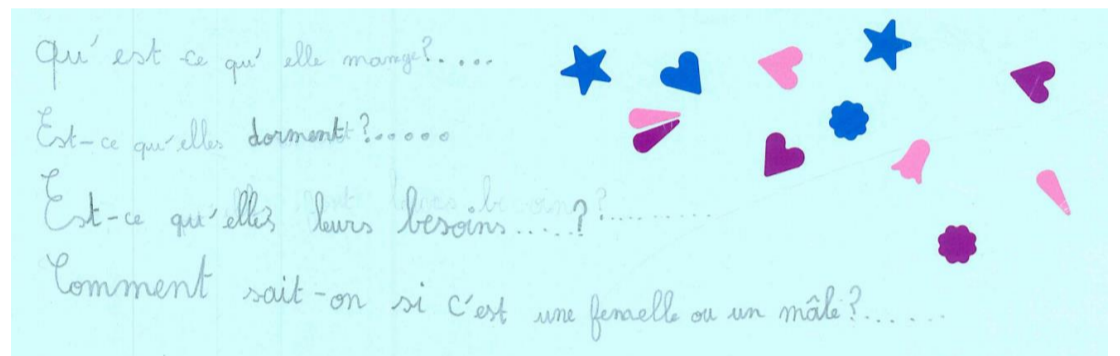 Qu'est-ce qu'elle mange?....
Est-ce qu'elles dorment?.....
Est-ce qu'elles leurs besoins.....?
Comment sait-on si c'est une femelle ou un mâle?......